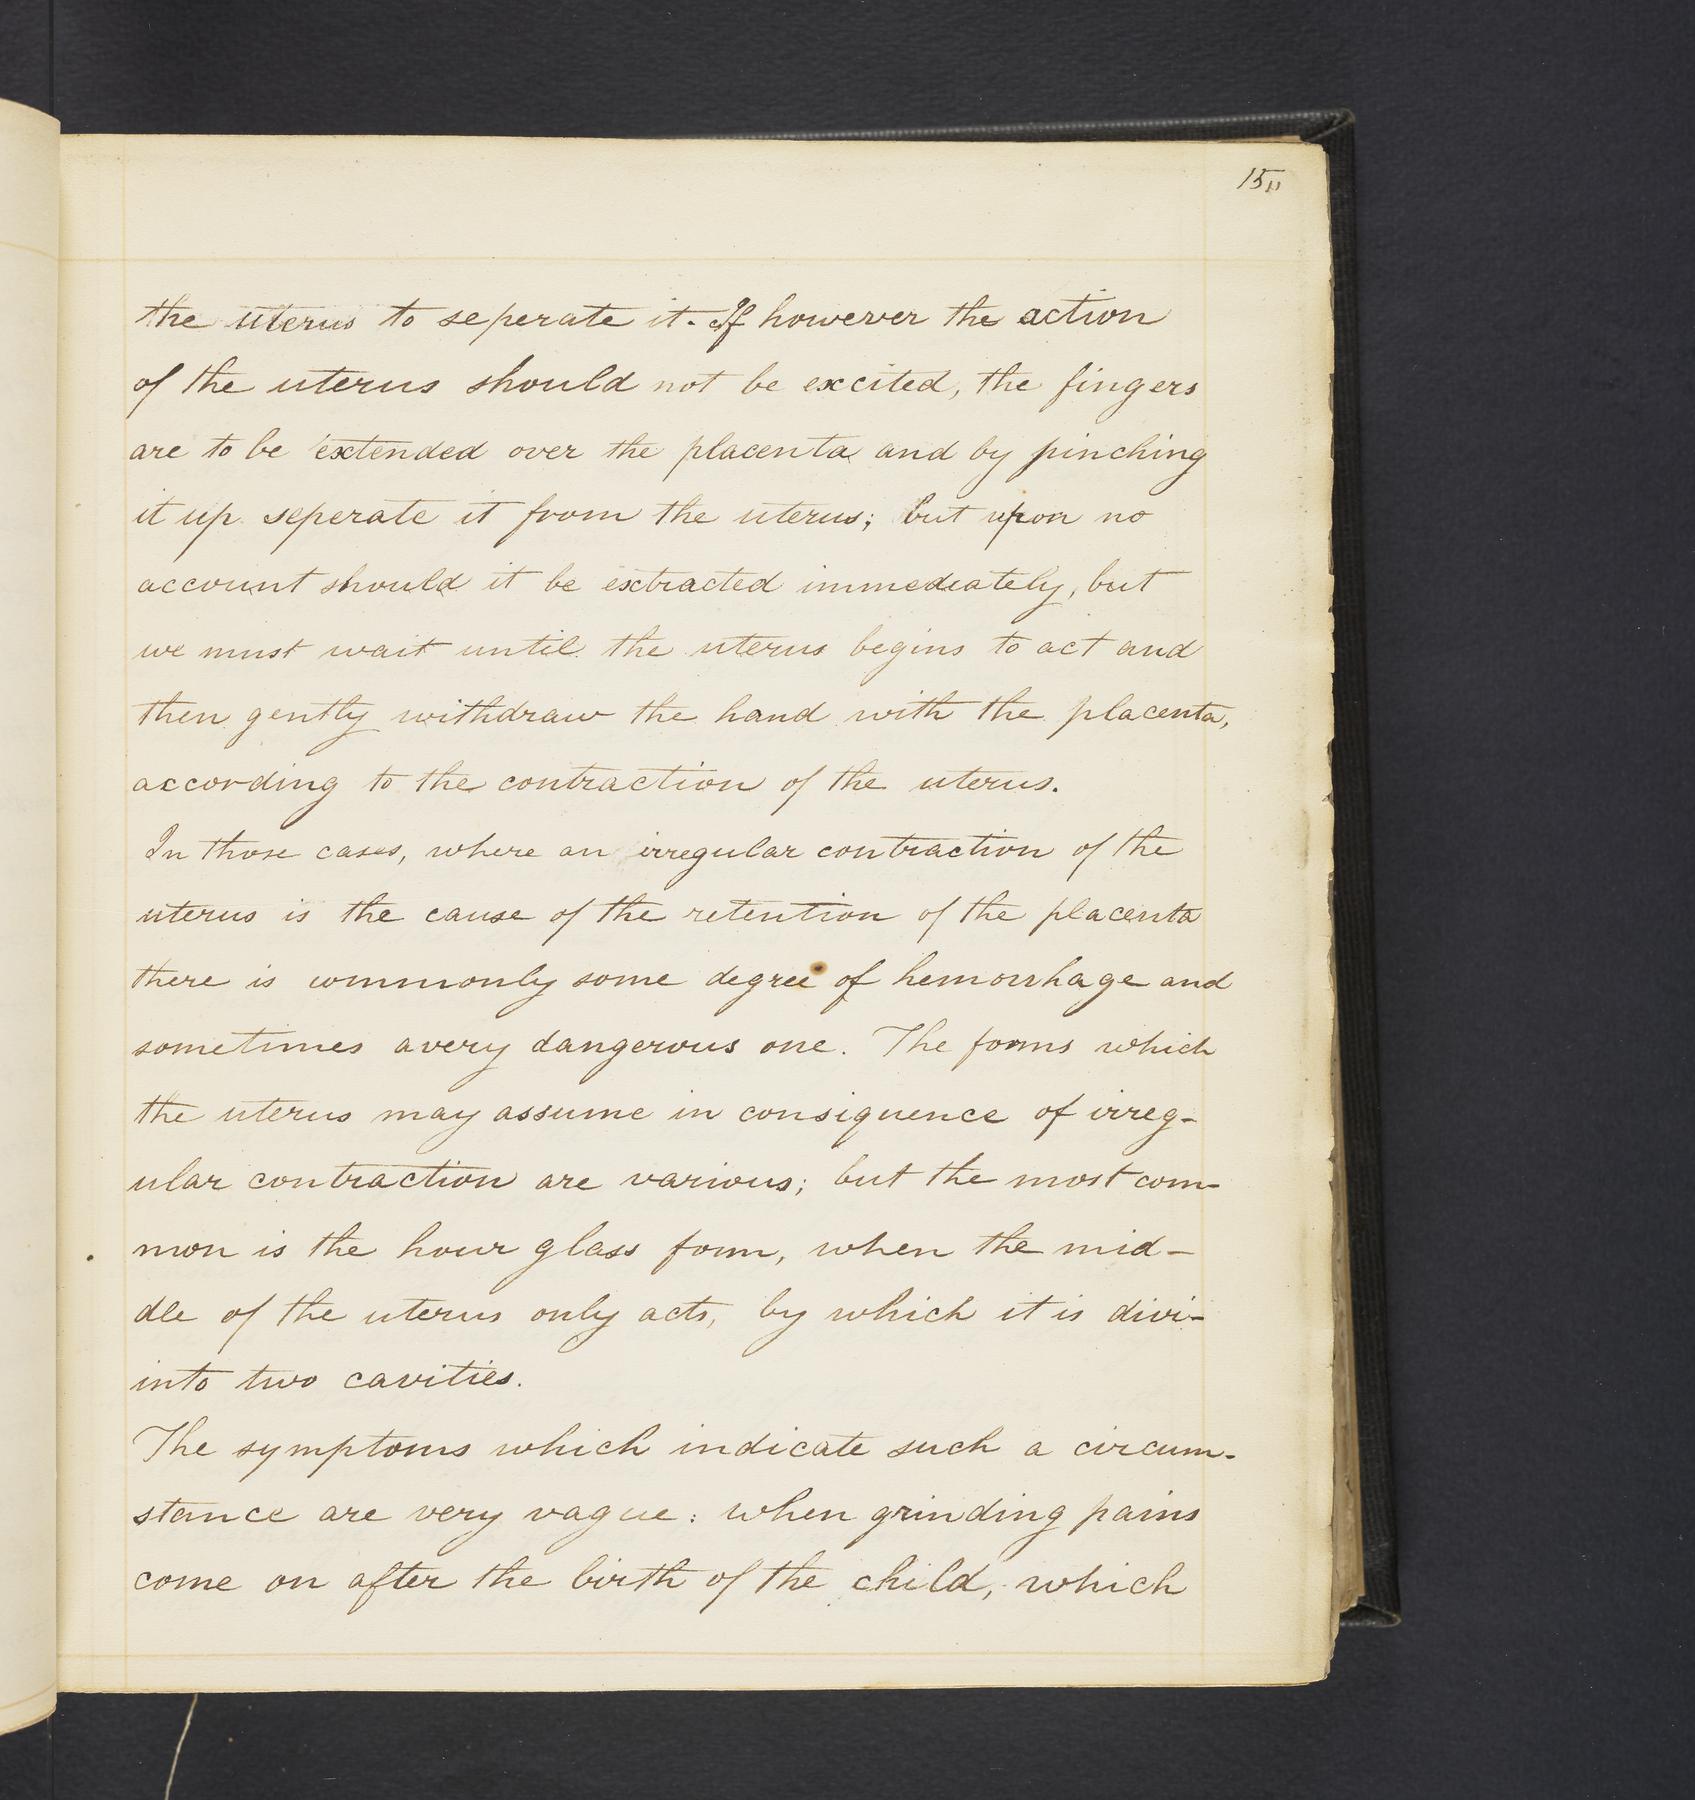 15"
the uterus to seperate it. If however the action
of the uterus should not be excited, the fingers
are to be extended over the placenta and by pinching
it up seperate it from the uterus; but upon no
account should it be extracted immediately, but
we must wait until the uterus begins to act and
then gently withdraw the hand with the placenta,
according to the contraction of the uterus.
In those cases, where an irregular contraction of the
uterus is the cause of the retention of the placenta
there is commonly some degree of hemorrhage and
sometimes a very dangerous one. The forms which
the uterus may assume in consiquence of irreg-
ular contraction are various; but the most com-
mon is the hour glass form, when the mid-
dle of the uterus only acts, by which it is divi-
into two cavities.
The symptoms which indicate such a circum-
stance are very vague: when grinding pains
come on after the birth of the child, which